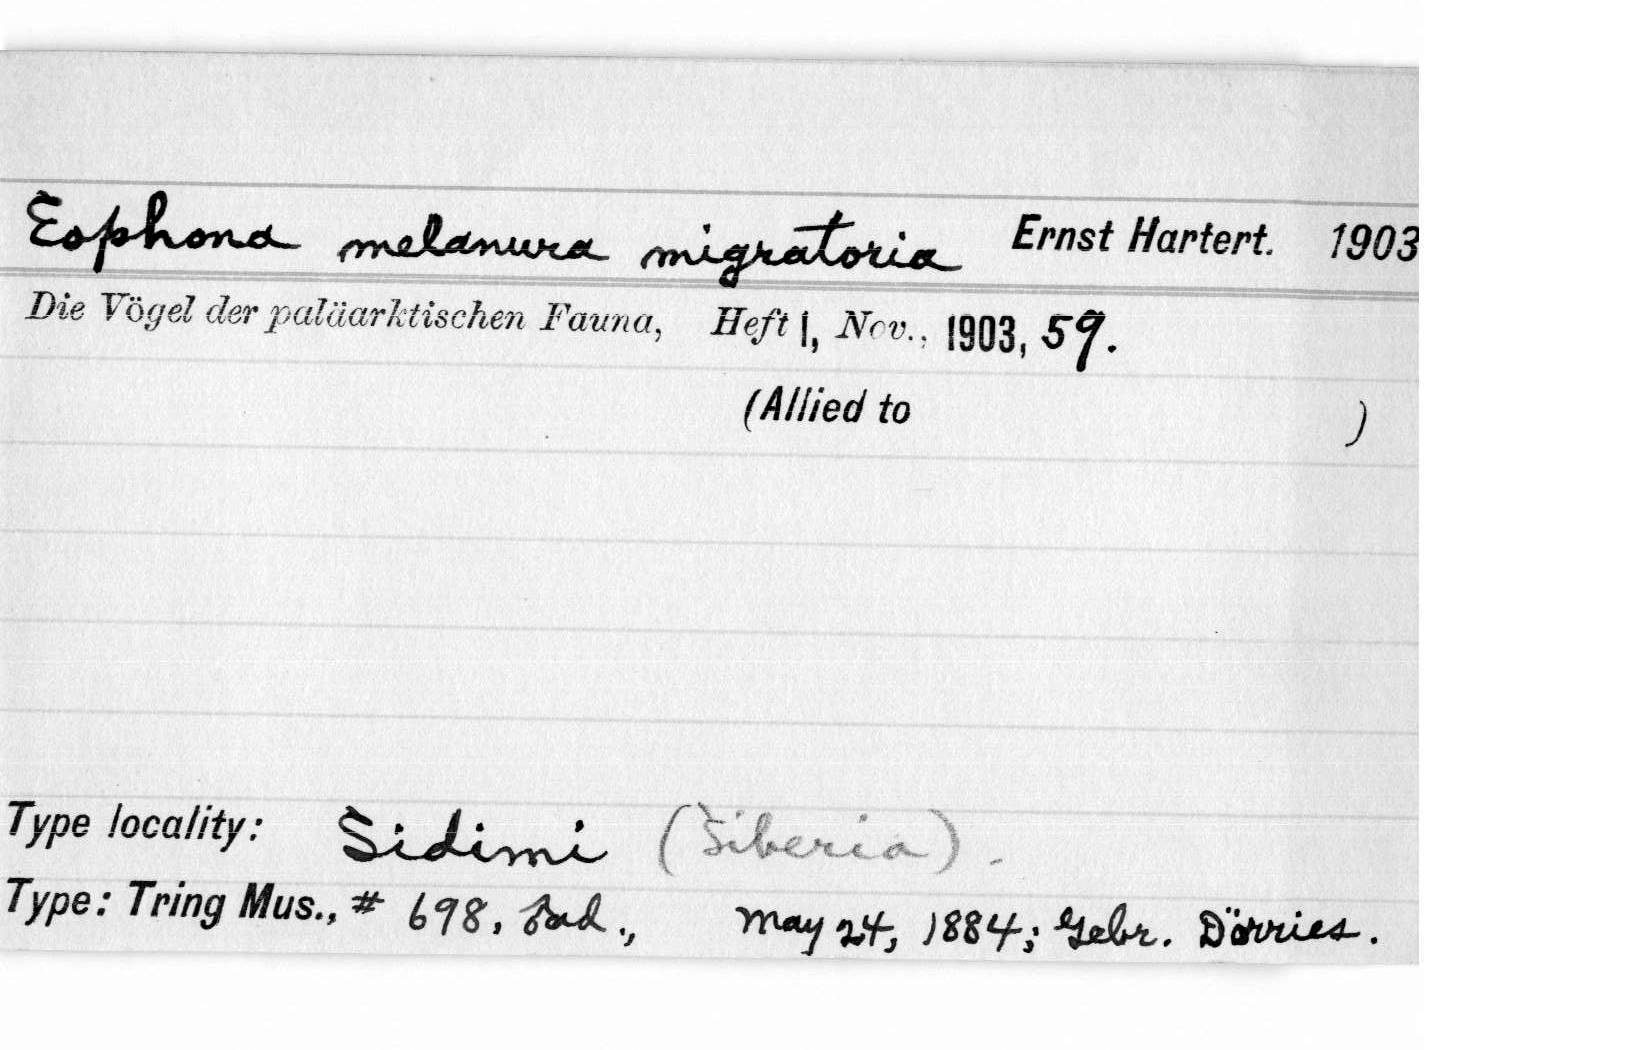 Eophona melanura migratoria Ernst Hartert. 1903
Die Vögel der paläarktischen Fauna, Heft 1, Nov., 1903, 59.
(Allied to )
Type locality: Sidimi (Siberia).
Type: Tring Mus., # 698, ♂ad., May 24, 1884; Gebr. Dörries.